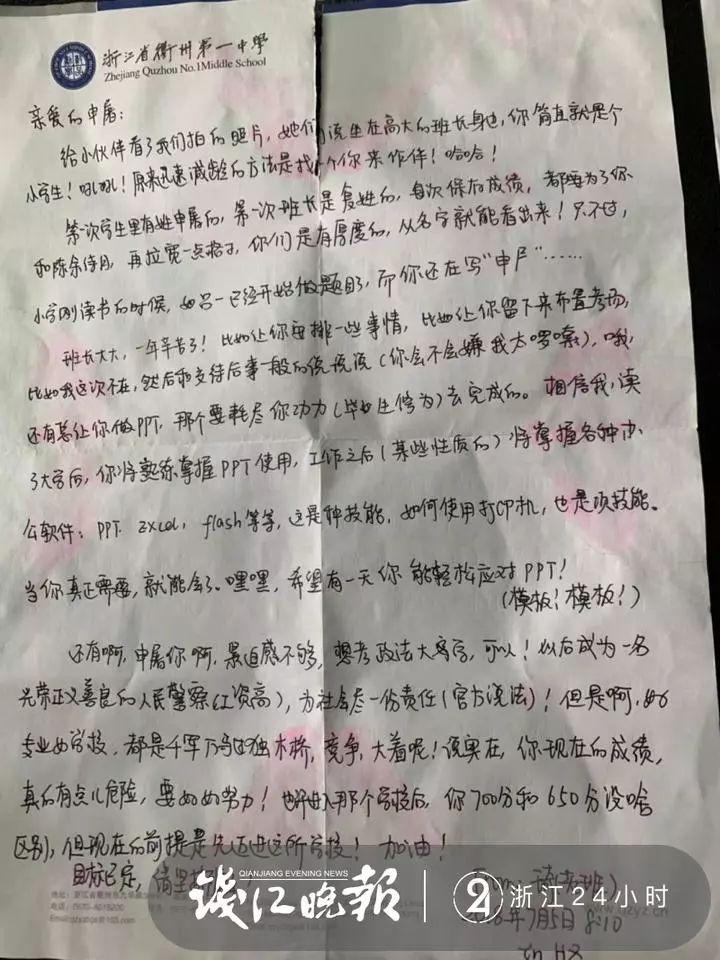 浙江省衢州第一中学
Zhejiang Quzhou No.1 Middle School
亲爱的申屠：
给小伙伴看了我们拍的照片，她们说坐在高大的班长身边，你简直就是个
小学生！吼吼！原来迅速减龄的方法是找个你来作伴！哈哈！
第一次学生里有姓申屠的，第一次班长是复姓的，每次保存成绩，都要为了你
和陈余诗月，再拉宽一点格子，你们是有厚度的，从名字就能看出来！只不过，
小学刚读书的时候，如吕一已经开始做题目了，而你还在写“申尸”……
班长大大，一年辛苦了！比如让你安排一些事情，比如让你留下来布置考场，
比如我这次不在，然后和交待后事一般的说说说（你会不会嫌我太啰嗦），哦，
还有总让你做PPT，那个要耗尽你功力（毕生修为）去完成的。相信我，读
了大学后，你将熟练掌握PPT使用，工作之后（某些性质的）将掌握各种办
公软件：PPT、excel，flash等等，这是种技能，如何使用打印机，也是项技能。
当你真正需要，就能会了。嘿嘿，希望有一天你能轻松应对PPT！
（模板！模板！）
还有啊，申屠你啊，紧迫感不够，想考政法大学，可以！以后成为一名
光荣正义善良的人民警察（工资高），为社会尽一份责任（官方说法）！但是啊，好
专业好学校，都是千军万马过独木桥，竞争，大着呢！说实在，你现在的成绩，
真的有点儿危险，要好好努力！也许进入那个学校后，你700分和650分没啥
区别，但现在的前提是先迈进这所学校！加油！
目标已定，请
From：
7月5日 8:10
钱江晚报
QIANJIANG EVENING NEWS
浙江24小时